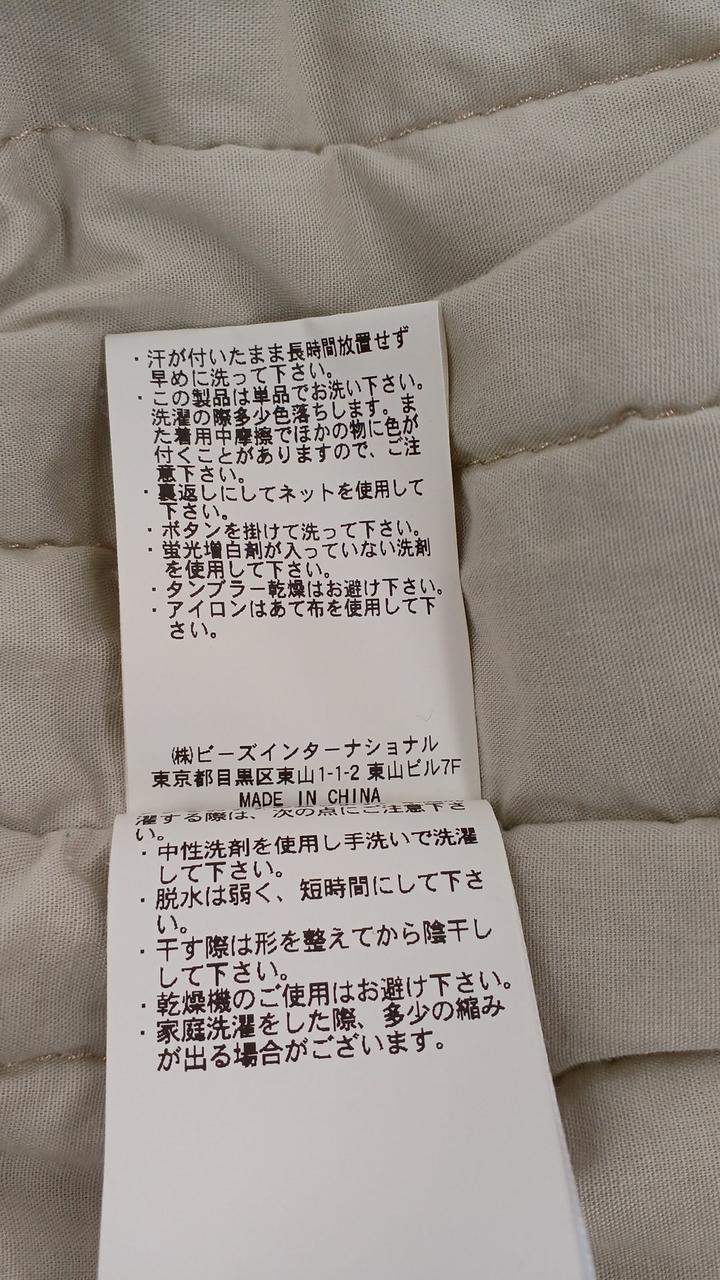 ・汗が付いたまま長時間放置せず
早めに洗って下さい。
・この製品は単品でお洗い下さい。
洗濯の際多少色落ちします。ま
た着用中摩擦でほかの物に色が
付くことがありますので、ご注
意下さい。
・裏返しにしてネットを使用して
下さい。
・ボタンを掛けて洗って下さい。
・蛍光増白剤が入っていない洗剤
を使用して下さい。
・タンブラー乾燥はお避け下さい。
・アイロンはあて布を使用して下
さい。
㈱ビーズインターナショナル
東京都目黒区東山1-1-2 東山ビル7F
MADE IN CHINA
濯する際は、次の点にご注意下さ
い。
・中性洗剤を使用し手洗いで洗濯
して下さい。
・脱水は弱く、短時間にして下さ
い。
・干す際は形を整えてから陰干し
して下さい。
・乾燥機のご使用はお避け下さい。
・家庭洗濯をした際、多少の縮み
が出る場合がございます。